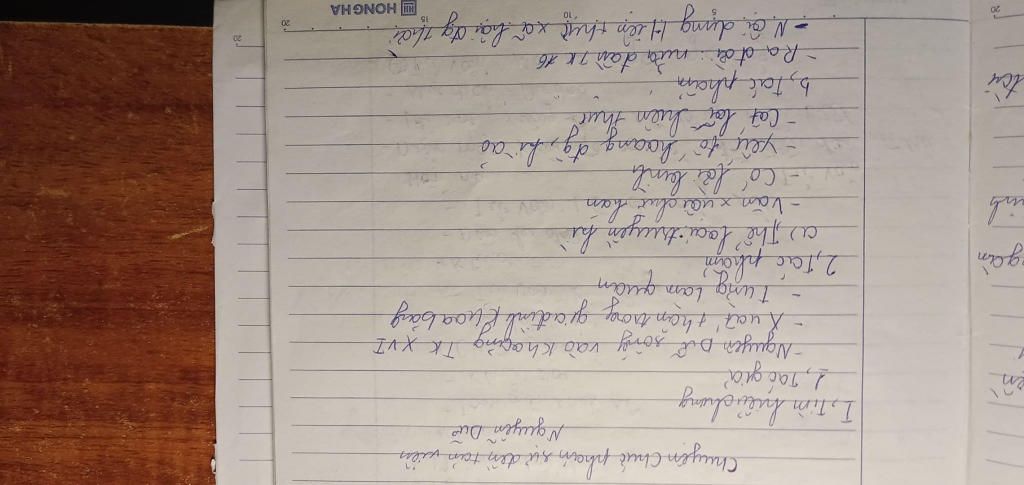 Chuyện Chức phán sự đền tản viên
Nguyễn Dữ
I, Tìm hiểu chung
1, Tác giả
- Nguyễn Dữ sống vào khoảng TK XVI
- Xuất thân trong gia đình khoa bảng
- Từng làm quan
2, Tác phẩm
a) Thể loại: truyền kì
- Văn xuôi chữ hán
- Có lời bình
- yếu tố hoang đg, kì ảo
- Cốt lõi hiện thực
b, Tác phẩm
- Ra đời: nửa đầu TK 16
- Nội dung Hiện thực xã hội đg thời
HONG HA
20
15
10
5
20
20